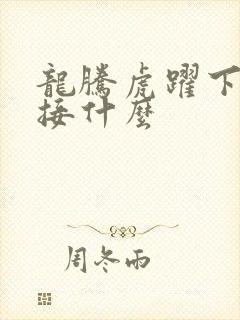 龍騰虎躍下
接什麼
周冬雨